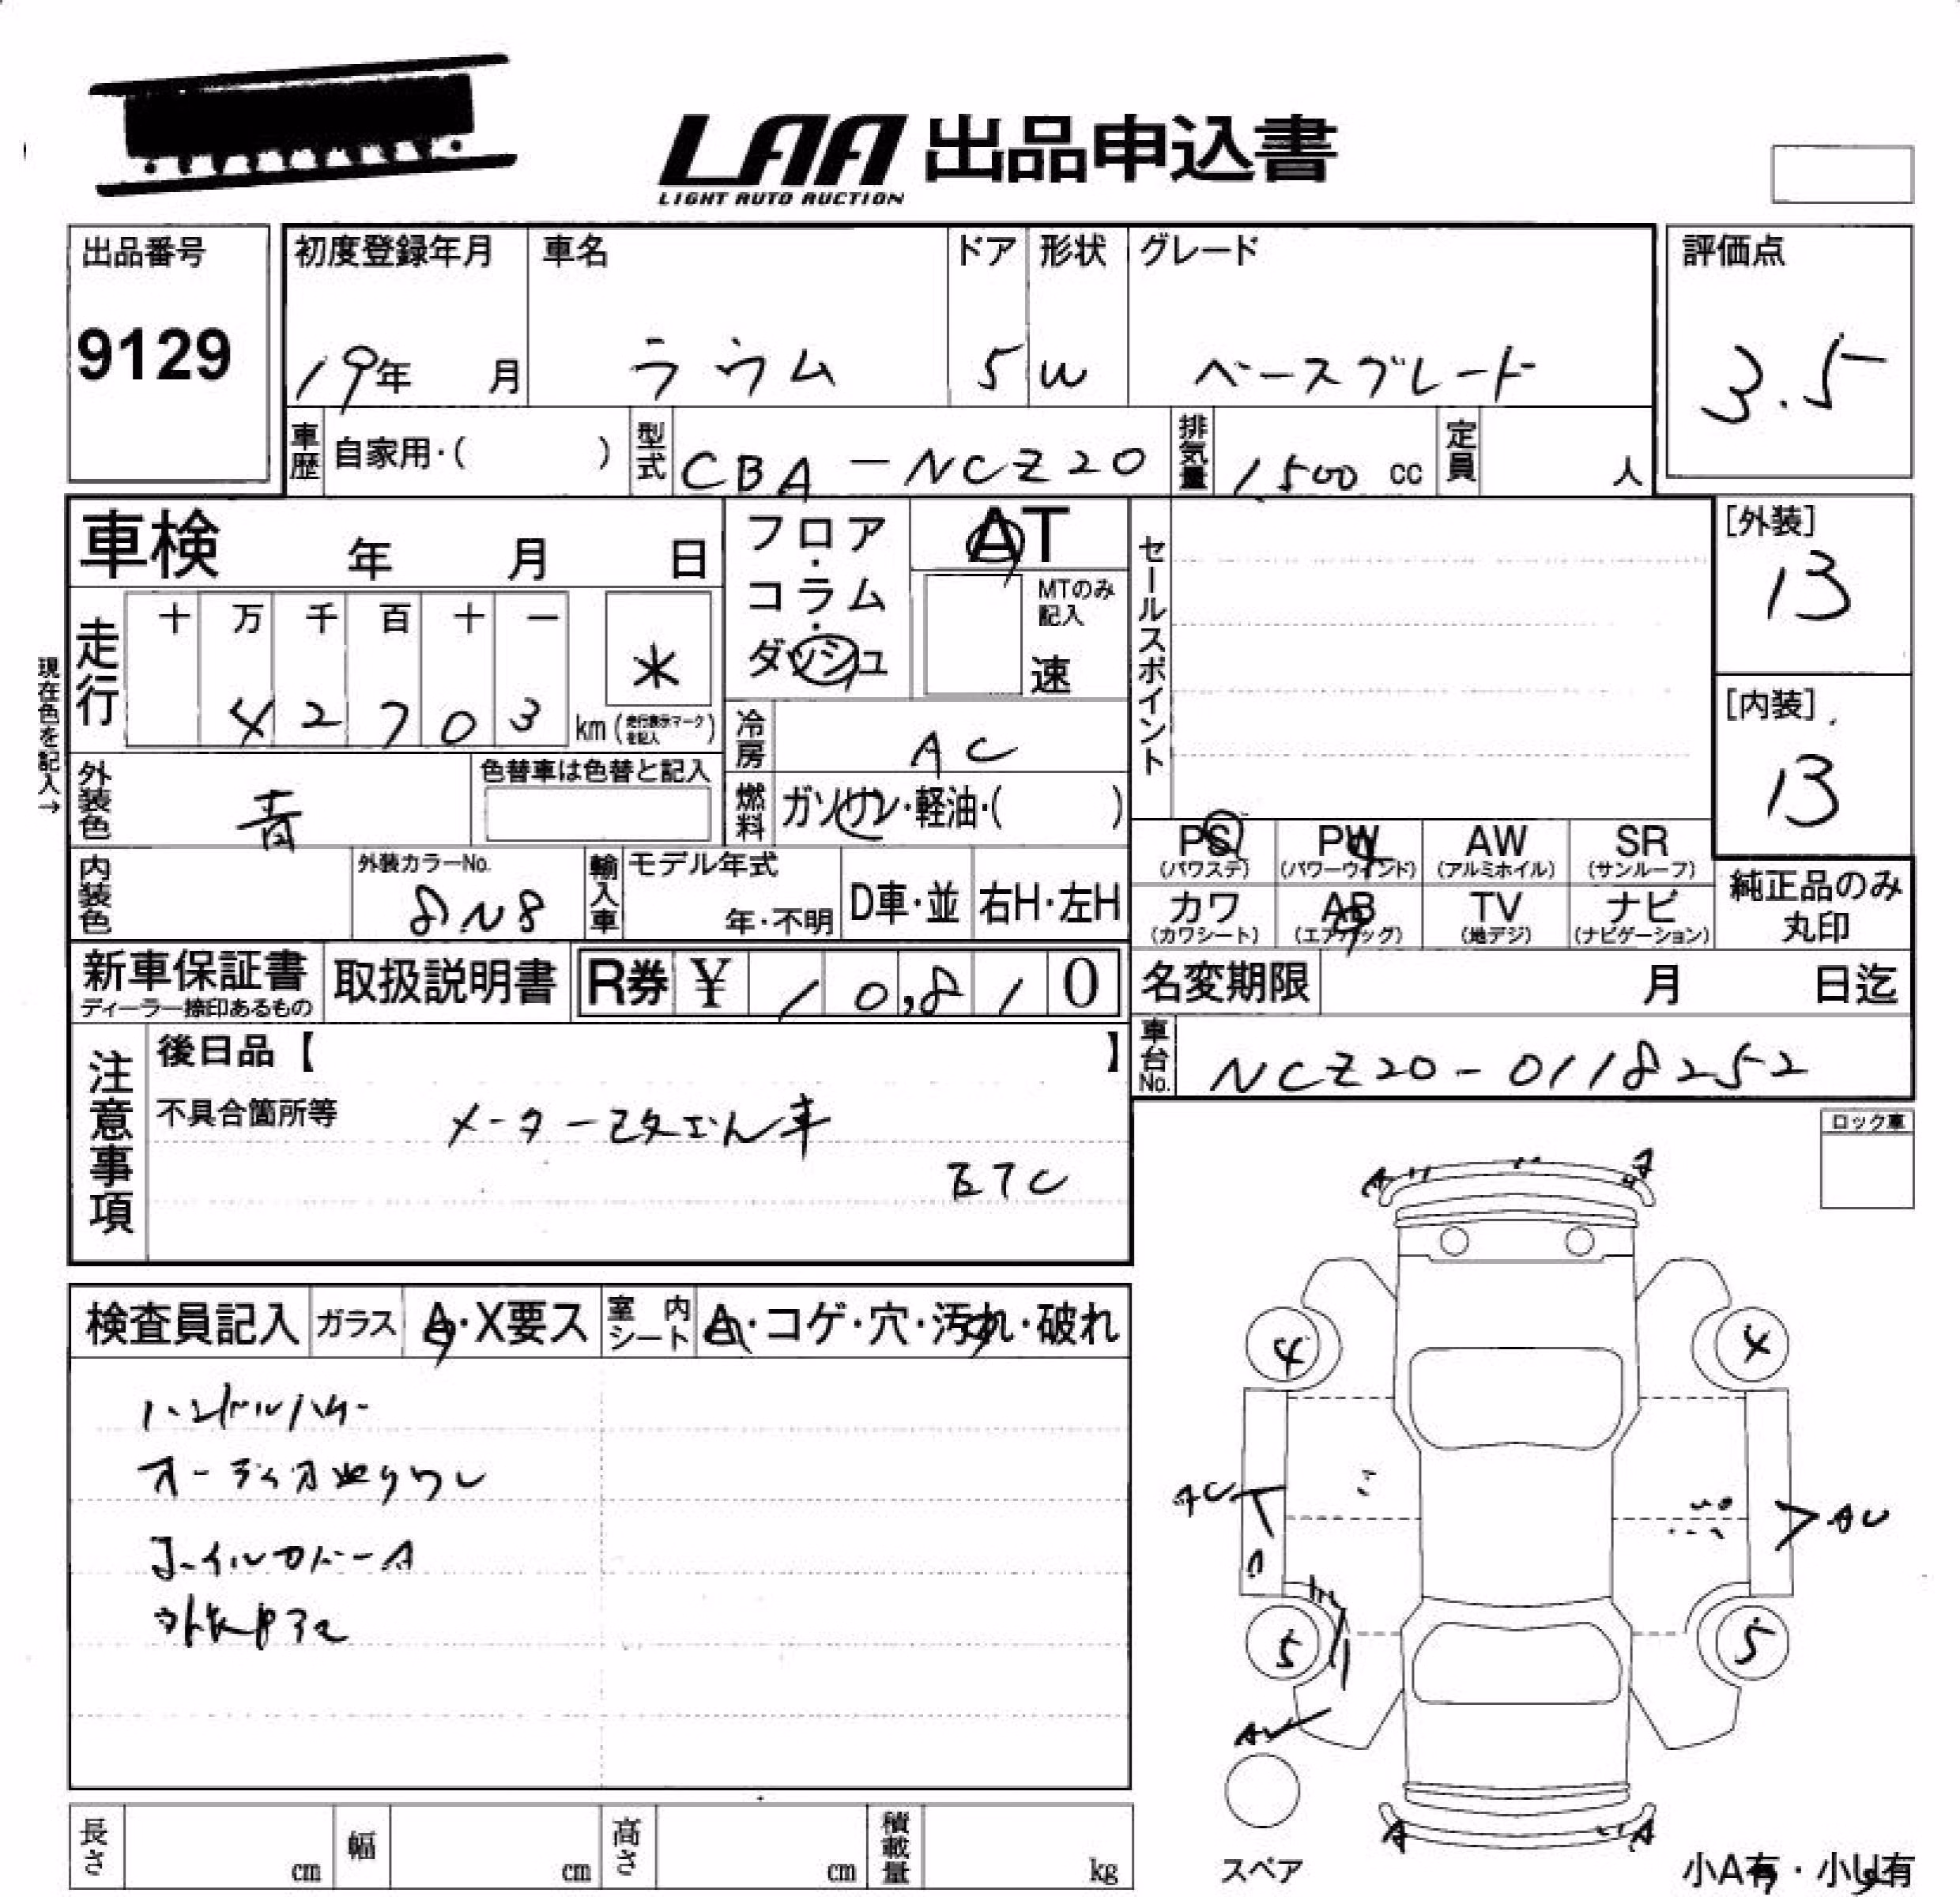 LAA 出品申込書
LIGHT AUTO AUCTION
出品番号
9129
初度登録年月
19年 月
車名
ラウム
ドア
5
形状
W
グレード
ベースグレード
評価点
3.5
車歴 自家用・( )
型式 CBA-NCZ20
排気量 1,500 cc
定員 人
車検 年 月 日
フロア・コラム・ダッシュ
AT
MTのみ記入
速
セールスポイント
[外装]
13
[内装]
13
現在色を記入→
走行
十 万 千 百 十 一
4 2 7 0 3
km (走行表示マークを記入)
*
冷房 AC
燃料 ガソリン・軽油・( )
外装色 青
色替車は色替と記入
内装色
外装カラーNo.
8N8
輸入車
モデル年式
年・不明
D車・並
右H・左H
PS (パワステ)
PW (パワーウインド)
AW (アルミホイル)
SR (サンルーフ)
カワ (カワシート)
AB (エアバッグ)
TV (地デジ)
ナビ (ナビゲーション)
純正品のみ
丸印
新車保証書
ディーラー捺印あるもの
取扱説明書
R券 ¥ 10,810
名変期限 月 日迄
車台No. NCZ20-0118252
注意事項
後日品【 】
不具合箇所等
メーター改ざん車
ETC
ロック車
検査員記入
ガラス A・X要ス
室内シート A・コゲ・穴・汚れ・破れ
オーディオ
A
A
4
4
AU
5
5
A
A
スペア
長さ cm
幅 cm
高さ cm
積載量 kg
小A有・小U有